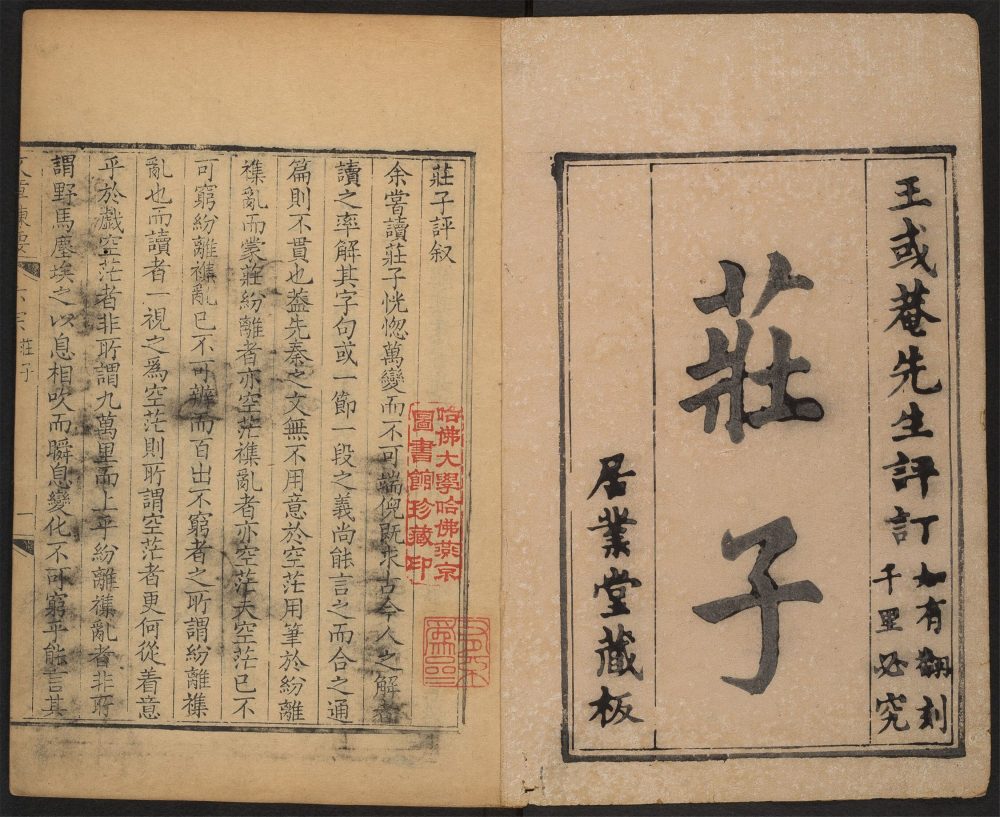 王或菴先生評訂
如有翻刻
千里必究
莊子
居業堂藏板
莊子評叙
余嘗讀莊子恍惚萬變而不可端倪既求古今人之解者
讀之率解其字句或一節一段之義尚能言之而合之通
篇則不貫也葢先秦之文無不用意於空茫用筆於紛離
襍亂而蒙莊紛離者亦空茫襍亂者亦空茫夫空茫已不
可窮紛離襍亂已不可辨而百出不窮者之所謂紛離襍
亂也而讀者一視之爲空茫則所謂空茫者更何從着意
乎於戲空茫者非所謂九萬里而上乎紛離襍亂者非所
謂野馬塵埃之以息相吹而瞬息變化不可窮乎能言其
文章練要
六宗
莊子
一
哈佛大學哈佛燕京
圖書館珍藏印